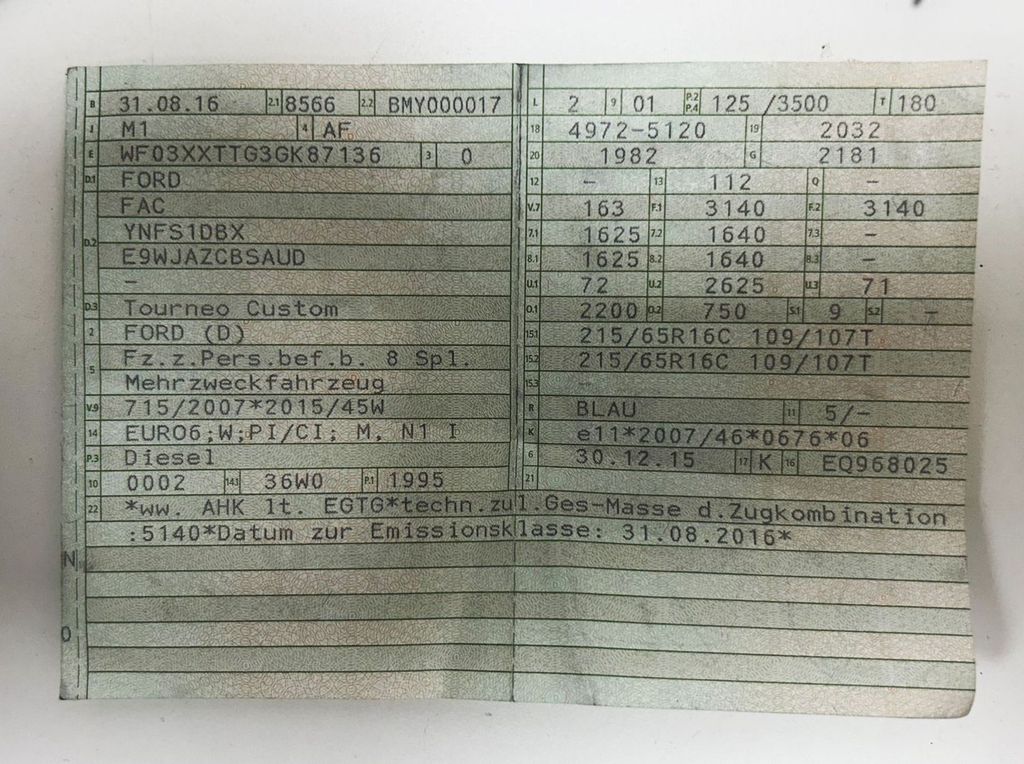 B 31.08.16 2.1 8566 2.2 BMY000017 L 2 9 01 P.2 P.4 125 /3500 T 180
J M1 4 AF 18 4972-5120 19 2032
E WF03XXTTG3GK87136 3 0 20 1982 G 2181
D.1 FORD 12 - 13 112 Q -
FAC V.7 163 F.1 3140 F.2 3140
D.2 YNFS1DBX 7.1 1625 7.2 1640 7.3 -
E9WJAZCBSAUD 8.1 1625 8.2 1640 8.3 -
- U.1 72 U.2 2625 U.3 71
D.3 Tourneo Custom O.1 2200 O.2 750 S.1 9 S.2 -
2 FORD (D) 15.1 215/65R16C 109/107T
5 Fz.z.Pers.bef.b. 8 Spl. 15.2 215/65R16C 109/107T
Mehrzweckfahrzeug 15.3 -
V.9 715/2007*2015/45W R BLAU 11 5/-
14 EURO6;W;PI/CI; M, N1 I K e11*2007/46*0676*06
P.3 Diesel 6 30.12.15 17 K 16 EQ968025
10 0002 14.1 36W0 P.1 1995 21
22 *ww. AHK lt. EGTG*techn.zul.Ges-Masse d.Zugkombination
:5140*Datum zur Emissionsklasse: 31.08.2016*
N
O